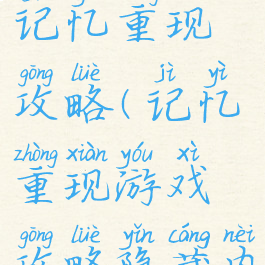 记忆重现
gōng lüè jì yì
攻略(记忆
zhòng xiàn yóu xì
重现游戏
gōng lüè yǐn cáng nèi
攻略隐藏内